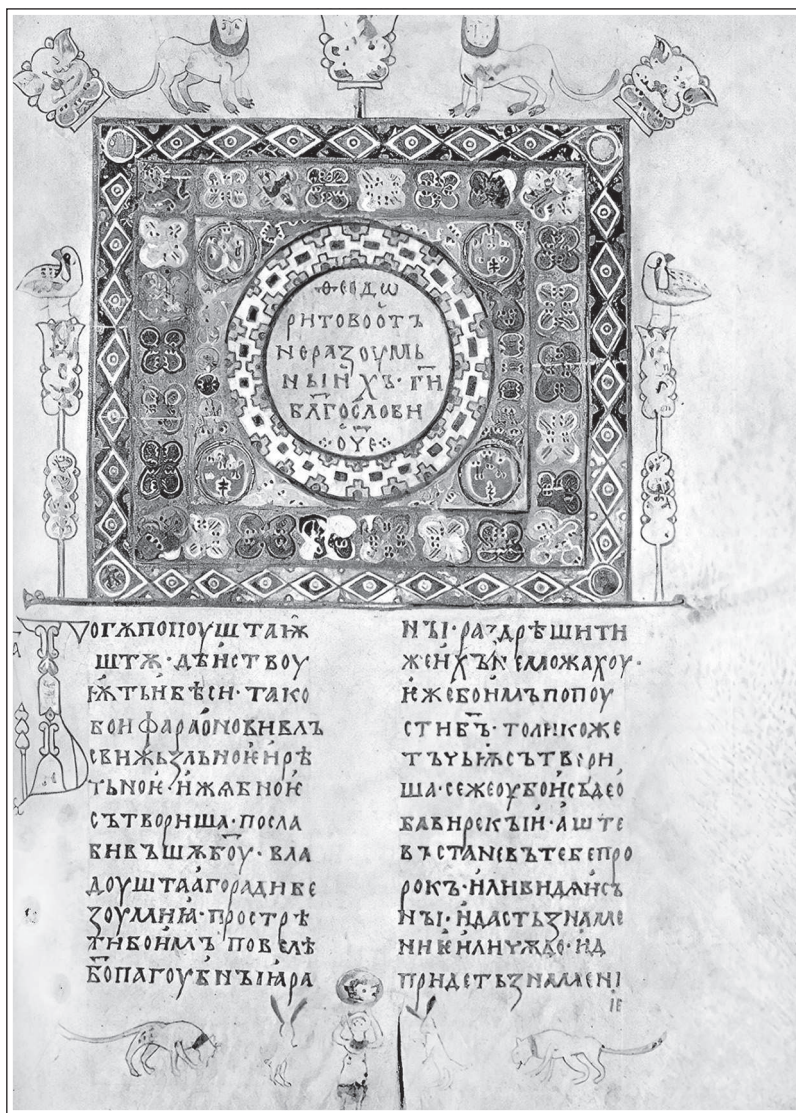 ѲЕОДѠ
РИТОВО ОТЪ
НЕРАЗОУМЬ
НЫИХЪ · ГИ
БЛГОСЛОВИ
ОЧЕ
ОГѪ ПОПОУШТАѬ
ШТѪ · ДѢИСТВОУ
ѬТЬ И БѢСИ · ТАКО
БО И ФАРАОНОВИ ВЛЪ
СВИ ЖЬЗЛЬНОѤ И РѢ
ЧЬНОѤ · И ЖѦБНОѤ
СЪТВОРИША · ПОСЛА
ВИВЪШѪ БОУ · ВЛА
ДОУШТААГО РАДИ БЕ
ЗОУМИꙖ · ПРОСТРѢ
ТИ БО ИМЪ ПОВЕЛѢ
БЪ ПАГОУБНЫѨ РА
НЫ · РАЗДРѢШИТИ
ЖЕ ИХЪ НЕ МОЖАХОУ ·
ѤЖЕ БО ИМЪ ПОПОУ
СТИ БЪ · ТОЛИКО ЖЕ
ТЪЧЬѬ СЪТВОРИ
ША · СЕ ЖЕ ОУБО И СЪДЕО
БАВИ РЕКЫИ · АШТЕ
ВЪСТАНЕ ВЪ ТЕБЕ ПРО
РОКЪ · ИЛИ ВИДѦИ СЪ
НЫ · И ДАСТЬ ЗНАМЕ
НИѤ ИЛИ ЧЮДО · И Д
ПРИДЕТЬ ЗНАМЕНІ
ІЕ